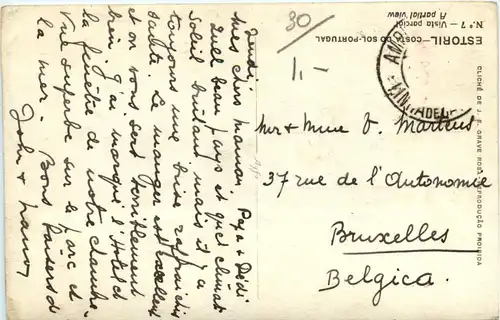 Jeudi,
Mes chers maman, Papa + Dédi
Quel beau pays et quel climat
soleil brûlant, mais il y a
toujours une brise rafraîchis
sante. Le manger est excellent
et on nous sert terriblement
bien. J'ai marqué l'Hôtel et
la fenêtre de notre chambre.
Vue superbe sur le parc et
la mer. Bons baisers de
John + Fanny
30/
1.-
Mr + Mme V. Martens
37 rue de l'Autonomie
Bruxelles
Belgica.
ESTORIL—COSTA DO SOL-PORTUGAL
N.º 7 — Vista parcial
A partial view
CLICHÉ DE J. F. GRAVE REPRODUÇÃO PROIBIDA